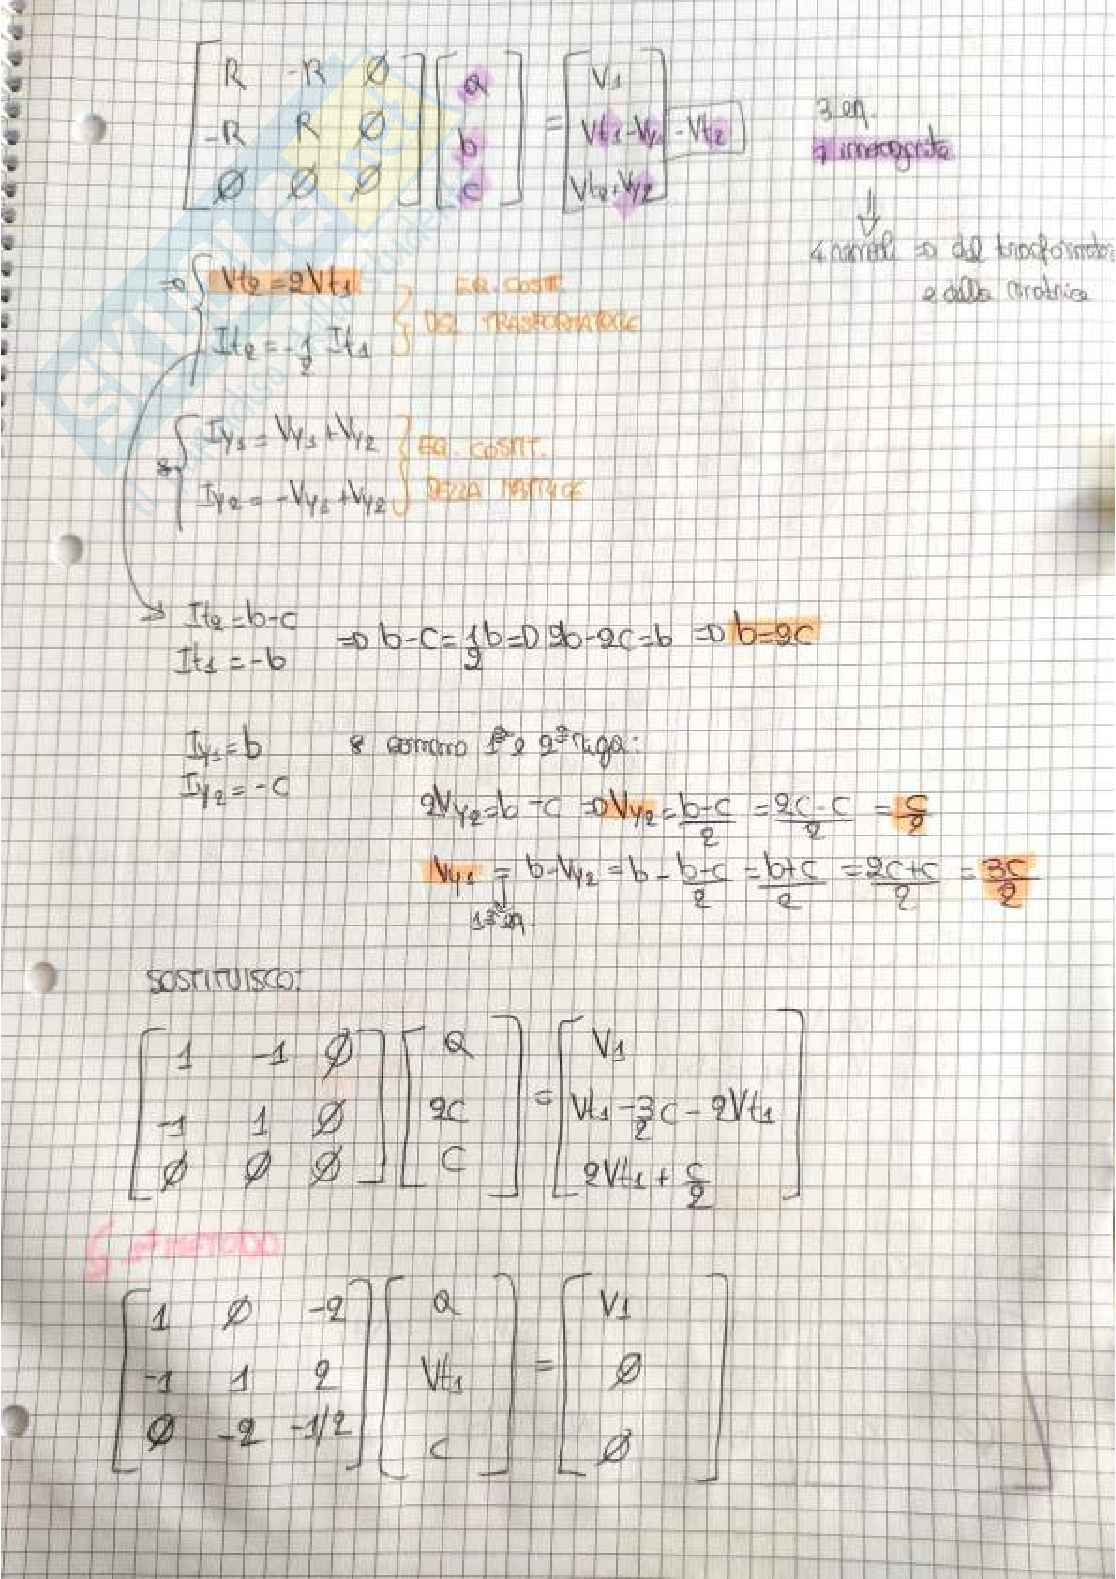 [ R -R Ø ] [ a ] = [ V1 ]
[ -R R Ø ] [ b ] = [ Vt1 - Vy1 - Vt2 ]
[ Ø Ø Ø ] [ c ] = [ Vt2 + Vy2 ]
3 eq.
7 incognite
⇓
4 normali => del trasformatore
e della matrice
=> { Vt2 = 2Vt1
It2 = -1/2 It1
EQ. COSTIT.
DEL TRASFORMATORE
& { Iy1 = Vy1 + Vy2
Iy2 = -Vy1 + Vy2
EQ. COSTIT.
DELLA MATRICE
It2 = b-c
It1 = -b
=> b-c = 1/2 b => 2b-2c = b => b=2c
Iy1 = b
Iy2 = -c
& sommo 1ª e 2ª riga:
2Vy2 = b-c => Vy2 = (b-c)/2 = (2c-c)/2 = c/2
Vy1 = b-Vy2 = b - (b-c)/2 = (b+c)/2 = (2c+c)/2 = 3c/2
1ª eq.
SOSTITUISCO:
[ 1 -1 Ø ] [ a ] = [ V1 ]
[ -1 1 Ø ] [ 2c ] = [ Vt1 - 3/2 c - 2Vt1 ]
[ Ø Ø Ø ] [ c ] = [ 2Vt1 + c/2 ]
METODO
[ 1 Ø -2 ] [ a ] = [ V1 ]
[ -1 1 2 ] [ Vt1 ] = [ Ø ]
[ Ø -2 -1/2 ] [ c ] = [ Ø ]